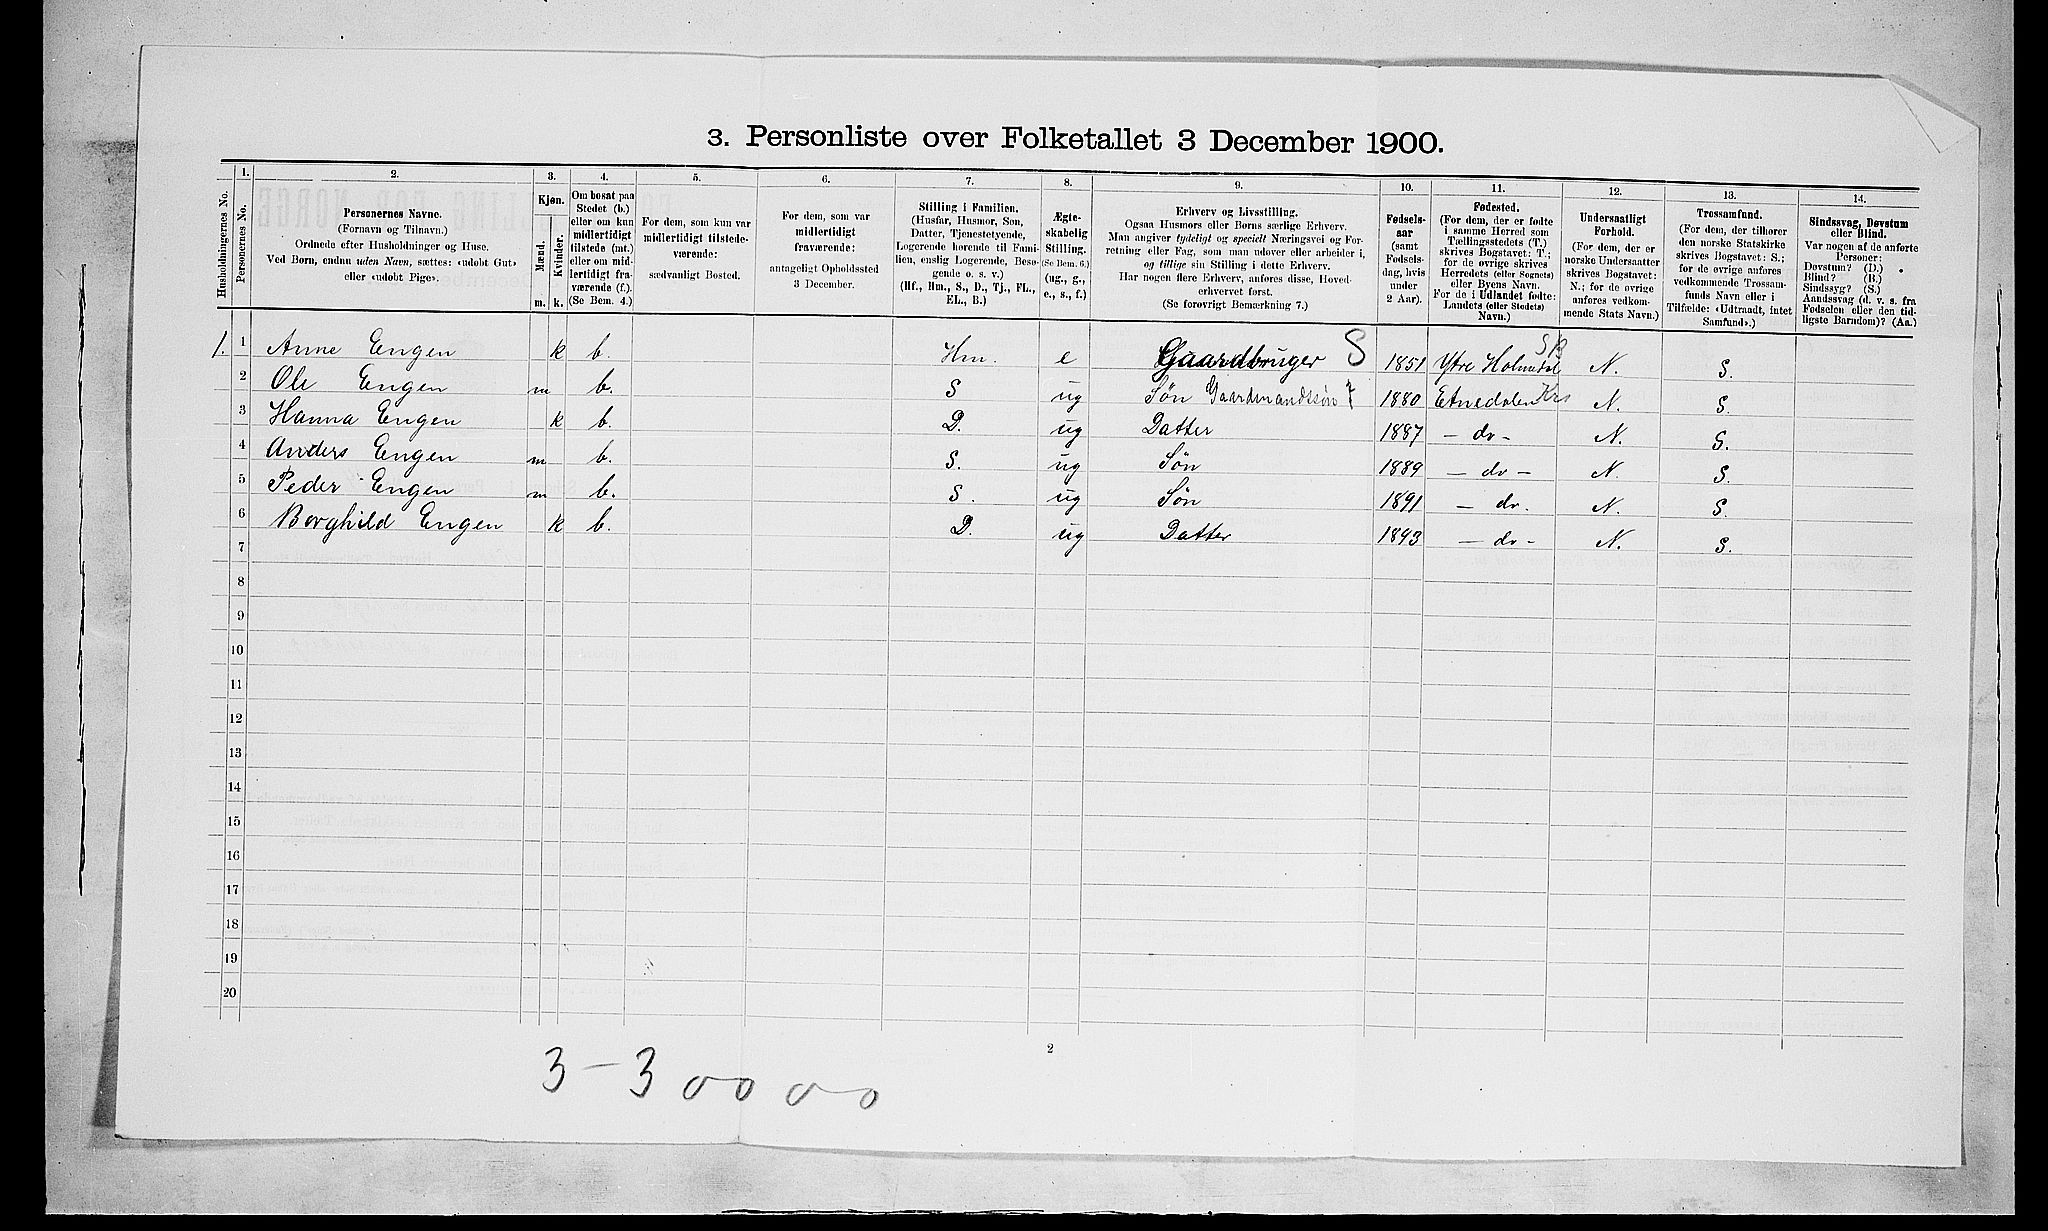 3. Personliste over Folketallet 3 December 1900.
Husholdningernes No.
1.
Personernes No.
2.
Personernes Navne.
(Fornavn og Tilnavn.)
Ordnede efter Husholdninger og Huse.
Ved Børn, endnu uden Navn, sættes: «udøbt Gut»
eller «udøbt Pige».
3.
Kjøn.
Mænd.
Kvinder.
m.
k.
4.
Om bosat paa
Stedet (b.)
eller om kun
midlertidigt
tilstede (mt.)
eller om mid-
lertidigt fra-
værende (f.).
(Se Bem. 4.)
5.
For dem, som kun var
midlertidigt tilstede-
værende:
sædvanligt Bosted.
6.
For dem, som var
midlertidigt
fraværende:
antageligt Opholdssted
3 December.
7.
Stilling i Familien.
(Husfar, Husmor, Søn,
Datter, Tjenestetyende,
Logerende hørende til Fami-
lien, enslig Logerende, Besø-
gende o. s. v.)
(Hf., Hm., S., D., Tj., FL.,
EL., B.)
8.
Ægte-
skabelig
Stilling.
(Se Bem. 6.)
(ug., g.,
e., s., f.)
9.
Erhverv og Livsstilling.
Ogsaa Husmors eller Børns særlige Erhverv.
Man angiver tydeligt og specielt Næringsvei og For-
retning eller Fag, som man udøver eller arbeider i,
og tillige sin Stilling i dette Erhverv.
Har nogen flere Erhverv, anføres disse, Hoved-
erhvervet først.
(Se forøvrigt Bemærkning 7.)
10.
Fødsels-
aar
(samt
Fødsels-
dag, hvis
under
2 Aar).
11.
Fødested.
(For dem, der er fødte
i samme Herred som
Tællingsstedets (T.)
skrives Bogstavet: T.;
for de øvrige skrives
Herredets (eller Sognets)
eller Byens Navn.
For de i Udlandet fødte:
Landets (eller Stedets)
Navn.)
12.
Undersaatligt
Forhold.
(For dem, der er
norske Undersaatter
skrives Bogstavet:
N.; for de øvrige
anføres vedkom-
mende Stats Navn.)
13.
Trossamfund.
(For dem, der tilhører
den norske Statskirke
skrives Bogstavet: S.;
for de øvrige anføres
vedkommende Trossam-
funds Navn eller i
Tilfælde: «Udtraadt, intet
Samfund».)
14.
Sindssvag, Døvstum
eller Blind.
Var nogen af de anførte
Personer:
Døvstum? (D.)
Blind? (B.)
Sindssyg? (S.)
Aandssvag (d. v. s. fra
Fødselen eller den tid-
ligste Barndom)? (Aa.)
1. 1 Anne Engen k b. Hm. e Gaardbruger S 1851 Ytre Holmdal N. S.
2 Ole Engen m b. S ug Søn Gaardmandssøn 1880 Etnedalen Krs N. S.
3 Hanna Engen k b. D. ug Datter 1887 – do – N. S.
4 Anders Engen m b. S. ug Søn 1889 – do – N. S.
5 Peder Engen m b. S. ug Søn 1891 – do. N. S.
6 Borghild Engen k b. D. ug Datter 1893 – do – N. S.
7
8
9
10
11
12
13
14
15
16
17
18
19
20
2
3 – 3 00 00